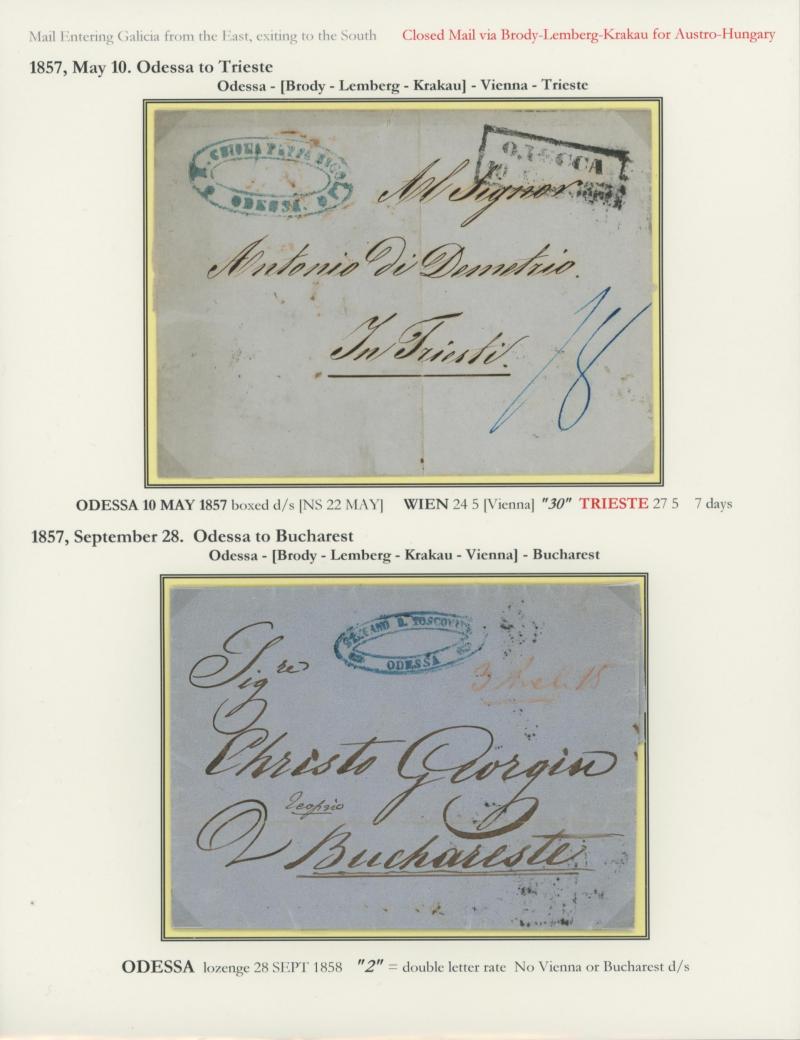 Mail Entering Galicia from the East, exiting to the South
Closed Mail via Brody-Lemberg-Krakau for Austro-Hungary
1857, May 10. Odessa to Trieste
Odessa - [Brody - Lemberg - Krakau] - Vienna - Trieste
ODESSA.
Al Signor
Antonio di Demetrio.
In Triesti.
18
ODESSA 10 MAY 1857 boxed d/s [NS 22 MAY] WIEN 24 5 [Vienna] "30" TRIESTE 27 5 7 days
1857, September 28. Odessa to Bucharest
Odessa - [Brody - Lemberg - Krakau - Vienna] - Bucharest
ODESSA
Sigre
Christo Georgiu
2 Buchareste
ODESSA lozenge 28 SEPT 1858 "2" = double letter rate No Vienna or Bucharest d/s